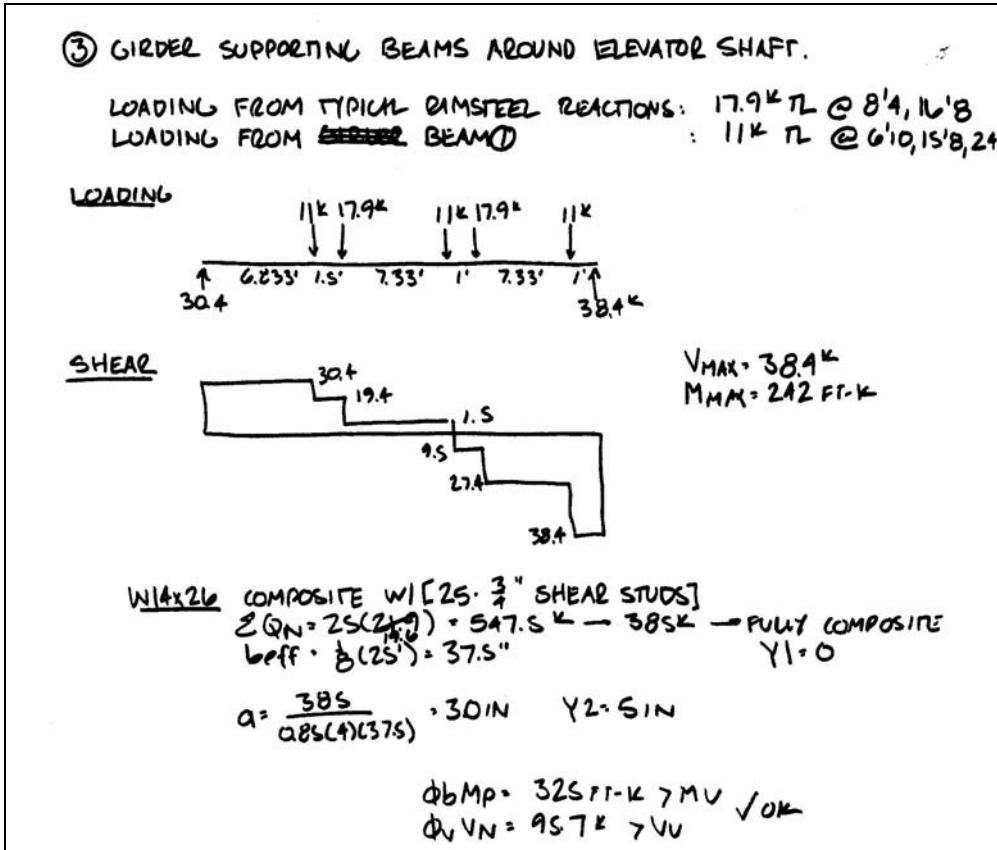 ③ GIRDER SUPPORTING BEAMS AROUND ELEVATOR SHAFT.
LOADING FROM TYPICAL RAMSTEEL REACTIONS: 17.9ᵏ TL @ 8'4, 16'8
LOADING FROM BEAM① : 11ᵏ TL @ 6'10, 15'8, 24
LOADING
11ᵏ 17.9ᵏ 11ᵏ 17.9ᵏ 11ᵏ
6.833' 1.5' 7.33' 1' 7.33' 1'
30.4 38.4ᵏ
SHEAR
30.4
19.4
1.5
9.5
27.4
38.4
VMAX= 38.4ᵏ
MMAX= 242 FT-K
W14x26 COMPOSITE W/[25- 3/4" SHEAR STUDS]
ΣQN = 25(21.9) = 547.5ᵏ → 385K → FULLY COMPOSITE
beff = 1/8(25') = 37.5" Y1=0
a= 385/0.85(4)(37.5) = 3.0IN Y2= 5IN
ϕbMp= 325 FT-K > MU
ϕvVN= 95.7ᵏ > VU √OK